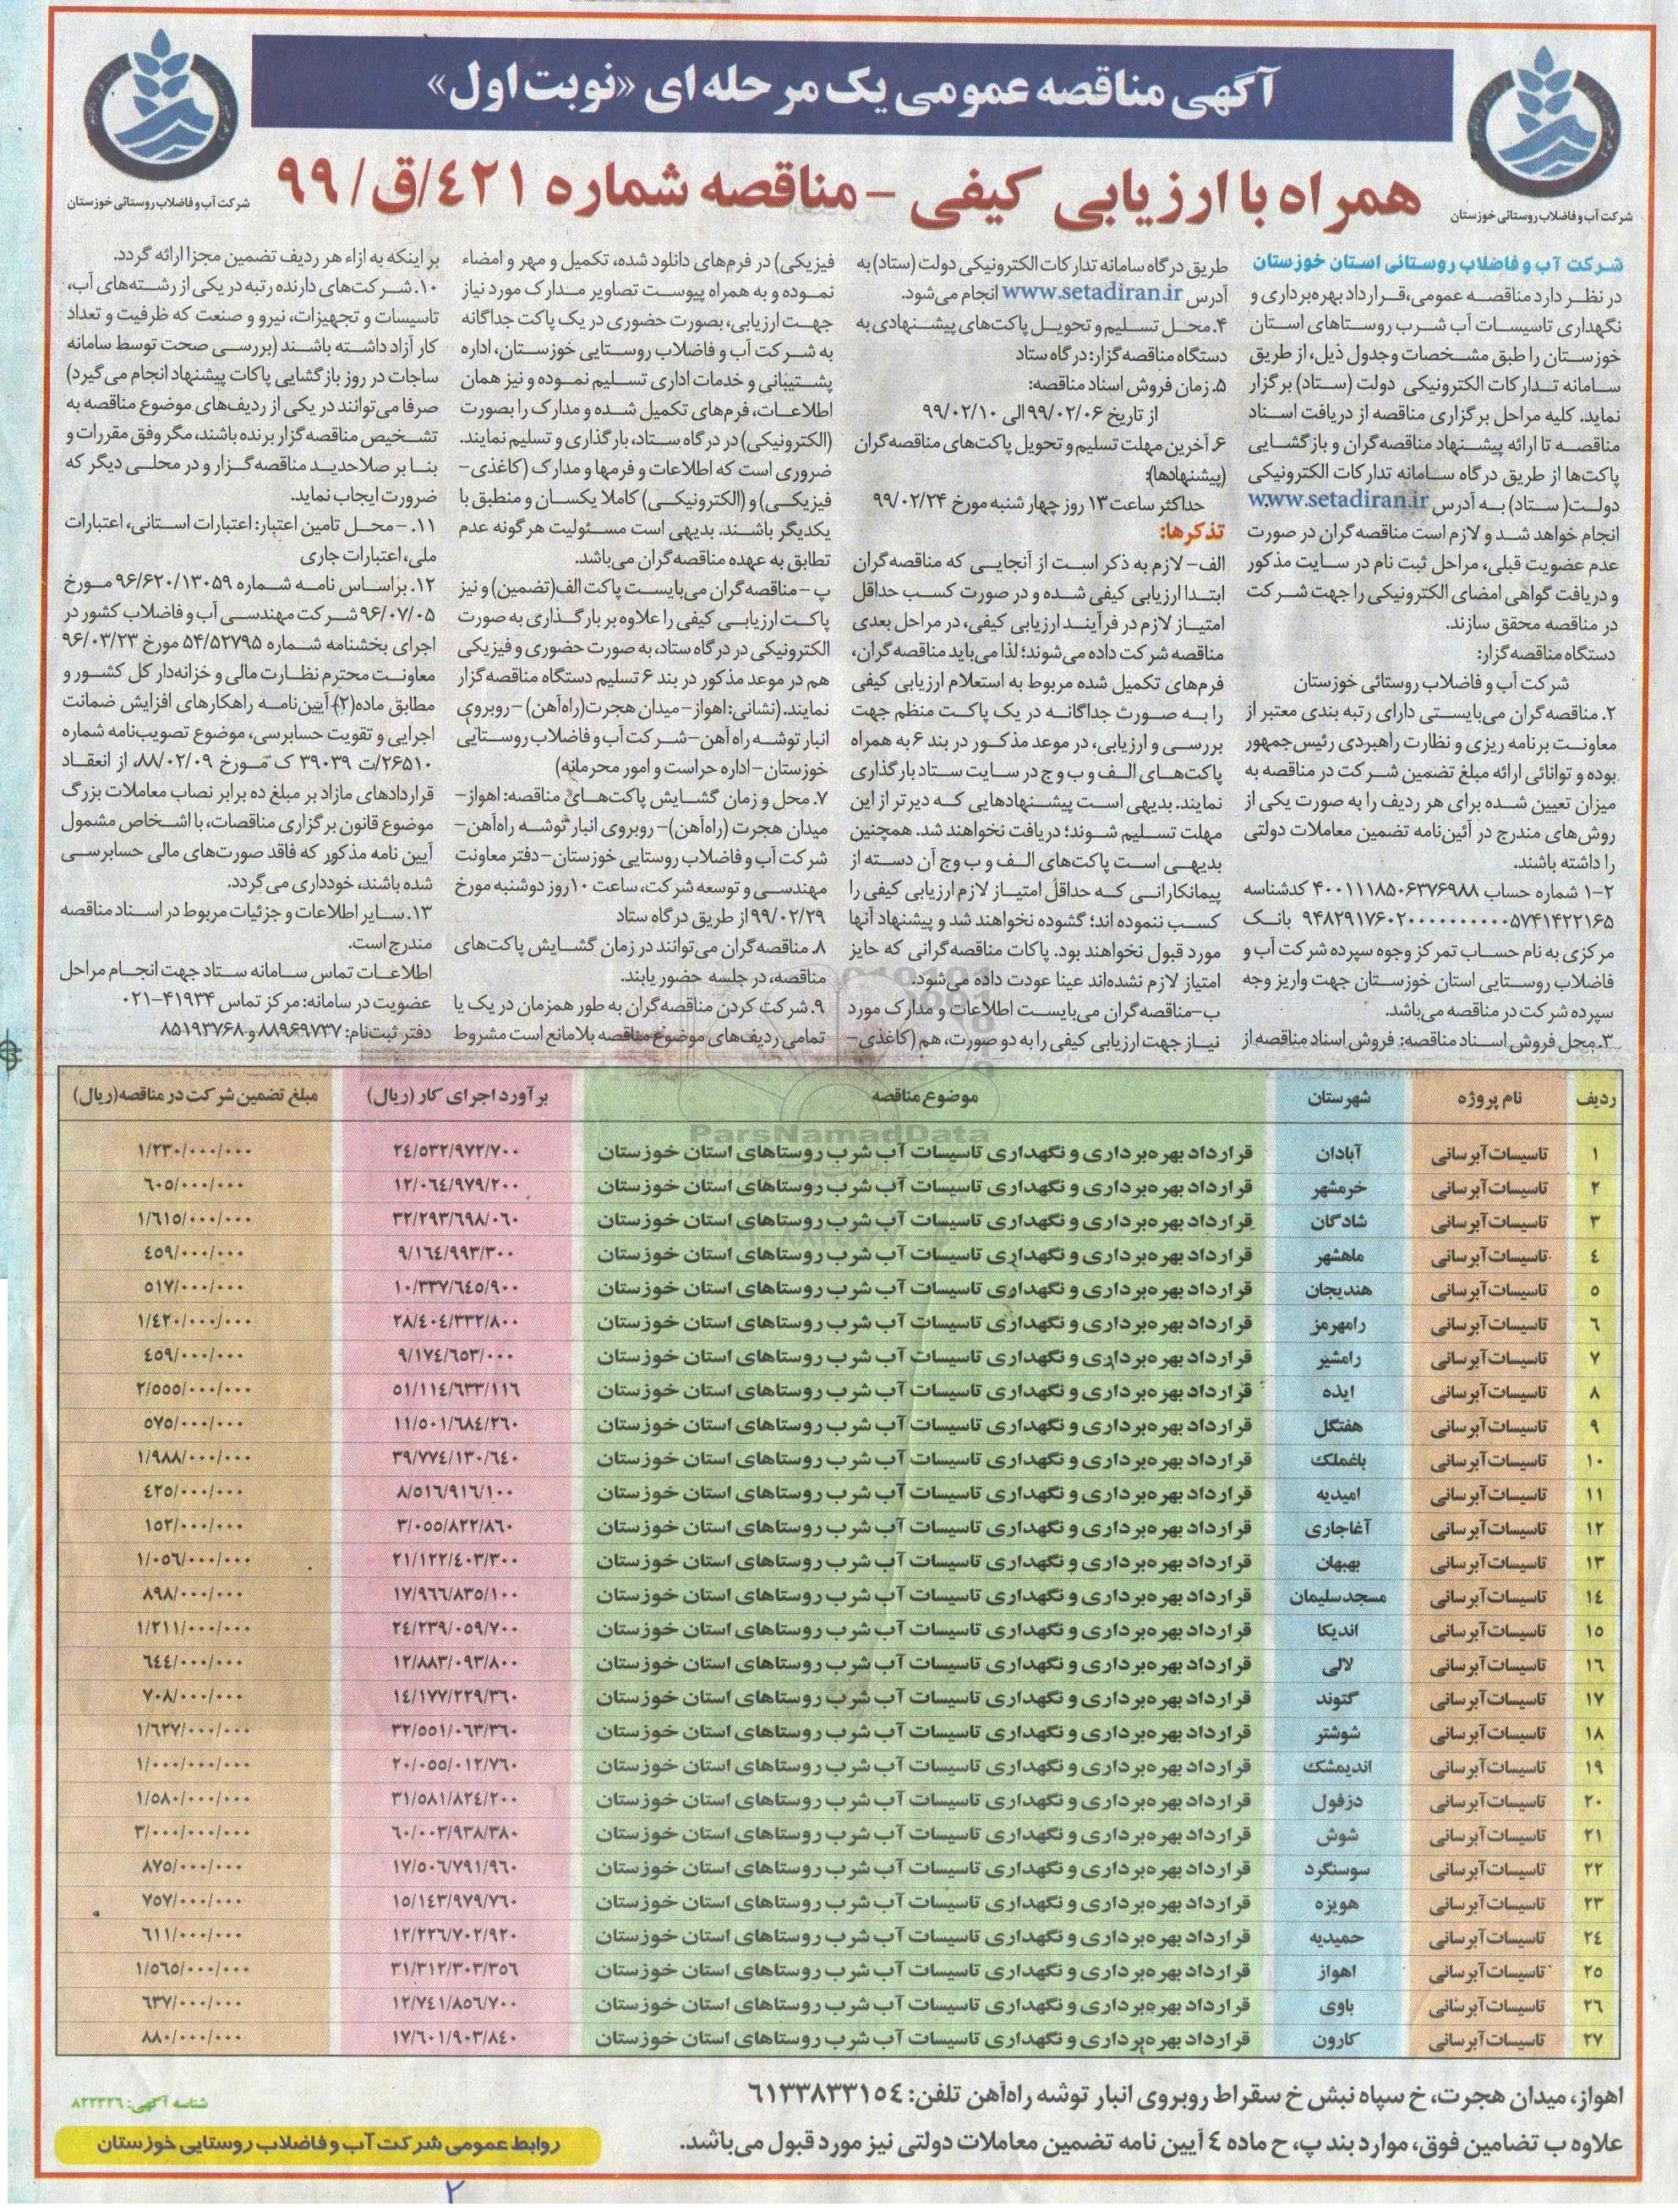 آگهی مناقصه عمومی یک مرحله ای «نوبت اول»
همراه با ارزیابی کیفی - مناقصه شماره ٤٢١/ق/٩٩
شرکت آب و فاضلاب روستائی خوزستان
شرکت آب و فاضلاب روستائی خوزستان
شرکت آب و فاضلاب روستائی استان خوزستان
در نظر دارد مناقصه عمومی،قرارداد بهره‌برداری و
نگهداری تاسیسات آب شرب روستاهای استان
خوزستان را طبق مشخصات وجدول ذیل، از طریق
سامانه تدارکات الکترونیکی دولت (ستاد) برگزار
نماید. کلیه مراحل برگزاری مناقصه از دریافت اسناد
مناقصه تا ارائه پیشنهاد مناقصه‌گران و بازگشایی
پاکت‌ها از طریق درگاه سامانه تدارکات الکترونیکی
دولت( ستاد) به آدرس www.setadiran.ir
انجام خواهد شد و لازم است مناقصه‌گران در صورت
عدم عضویت قبلی، مراحل ثبت نام در سایت مذکور
و دریافت گواهی امضای الکترونیکی را جهت شرکت
در مناقصه محقق سازند.
دستگاه مناقصه‌گزار:
شرکت آب و فاضلاب روستائی خوزستان
۲. مناقصه‌گران می‌بایستی دارای رتبه بندی معتبر از
معاونت برنامه ریزی و نظارت راهبردی رئیس‌جمهور
بوده و توانائی ارائه مبلغ تضمین شرکت در مناقصه به
میزان تعیین شده برای هر ردیف را به صورت یکی از
روش‌های مندرج در آئین‌نامه تضمین معاملات دولتی
را داشته باشند.
۱-۲ شماره حساب ۴۰۰۱۱۱۸۵۰۶۳۷۶۹۸۸ کدشناسه
۹۴۸۲۹۱۷۶۰۲۰۰۰۰۰۰۰۰۰۰۰۵۷۴۱۴۲۲۱۶۵ بانک
مرکزی به نام حساب تمرکز وجوه سپرده شرکت آب و
فاضلاب روستایی استان خوزستان جهت واریز وجه
سپرده شرکت در مناقصه می‌باشد.
۳. محل فروش اسناد مناقصه: فروش اسناد مناقصه از
طریق درگاه سامانه تدارکات الکترونیکی دولت (ستاد) به
آدرس www.setadiran.ir انجام می‌شود.
۴. محل تسلیم و تحویل پاکت‌های پیشنهادی به
دستگاه مناقصه‌گزار: درگاه ستاد
۵. زمان فروش اسناد مناقصه:
از تاریخ ۹۹/۰۲/۰۶ الی ۹۹/۰۲/۱۰
۶. آخرین مهلت تسلیم و تحویل پاکت‌های مناقصه‌گران
(پیشنهادها):
حداکثر ساعت ۱۳ روز چهارشنبه مورخ ۹۹/۰۲/۲۴
تذکرها:
الف- لازم به ذکر است از آنجایی که مناقصه‌گران
ابتدا ارزیابی کیفی شده و در صورت کسب حداقل
امتیاز لازم در فرآیند ارزیابی کیفی، در مراحل بعدی
مناقصه شرکت داده می‌شوند؛ لذا می‌باید مناقصه‌گران،
فرم‌های تکمیل شده مربوط به استعلام ارزیابی کیفی
را به صورت جداگانه در یک پاکت منظم جهت
بررسی و ارزیابی، در موعد مذکور در بند ۶ به همراه
پاکت‌های الف و ب و ج در سایت ستاد بارگذاری
نمایند. بدیهی است پیشنهادهایی که دیرتر از این
مهلت تسلیم شوند؛ دریافت نخواهند شد. همچنین
بدیهی است پاکت‌های الف و ب وج آن دسته از
پیمانکارانی که حداقل امتیاز لازم ارزیابی کیفی را
کسب ننموده اند؛ گشوده نخواهند شد و پیشنهاد آنها
مورد قبول نخواهند بود. پاکات مناقصه‌گرانی که حایز
امتیاز لازم نشده‌اند عینا عودت داده می‌شود.
ب-مناقصه‌گران می‌بایست اطلاعات و مدارک مورد
نیاز جهت ارزیابی کیفی را به دو صورت، هم (کاغذی-
فیزیکی) در فرم‌های دانلود شده، تکمیل و مهر و امضاء
نموده و به همراه پیوست تصاویر مدارک مورد نیاز
جهت ارزیابی، بصورت حضوری در یک پاکت جداگانه
به شرکت آب و فاضلاب روستایی خوزستان، اداره
پشتیبانی و خدمات اداری تسلیم نموده و نیز همان
اطلاعات، فرم‌های تکمیل شده و مدارک را بصورت
(الکترونیکی) در درگاه ستاد، بارگذاری و تسلیم نمایند.
ضروری است که اطلاعات و فرمها و مدارک (کاغذی-
فیزیکی) و (الکترونیکی) کاملا یکسان و منطبق با
یکدیگر باشند. بدیهی است مسئولیت هرگونه عدم
تطابق به عهده مناقصه‌گران می‌باشد.
پ-مناقصه‌گران می‌بایست پاکت الف(تضمین) و نیز
پاکت ارزیابی کیفی را علاوه بر بارگذاری به صورت
الکترونیکی در درگاه ستاد، به صورت حضوری و فیزیکی
هم در موعد مذکور در بند ۶ تسلیم دستگاه مناقصه‌گزار
نمایند. (نشانی: اهواز-میدان هجرت(راه‌آهن) -روبروی
انبار توشه راه آهن-شرکت آب و فاضلاب روستایی
خوزستان-اداره حراست و امور محرمانه)
۷. محل و زمان گشایش پاکت‌های مناقصه: اهواز-
میدان هجرت (راه‌آهن)- روبروی انبار توشه راه‌آهن-
شرکت آب و فاضلاب روستایی خوزستان-دفتر معاونت
مهندسی و توسعه شرکت، ساعت ۱۰ روز دوشنبه مورخ
۹۹/۰۲/۲۹ از طریق درگاه ستاد
۸. مناقصه‌گران می‌توانند در زمان گشایش پاکت‌های
مناقصه، در جلسه حضور یابند.
۹. شرکت کردن مناقصه‌گران به طور همزمان در یک یا
تمامی ردیف‌های موضوع مناقصه بلامانع است مشروط
بر اینکه به ازاء هر ردیف تضمین مجزا ارائه گردد.
۱۰. شرکت‌های دارنده رتبه در یکی از رشته‌های آب،
تاسیسات و تجهیزات، نیرو و صنعت که ظرفیت و تعداد
کار آزاد داشته باشند (بررسی صحت توسط سامانه
ساجات در روز بازگشایی پاکات پیشنهاد انجام می‌گیرد)
صرفا می‌توانند در یکی از ردیف‌های موضوع مناقصه به
تشخیص مناقصه‌گزار برنده باشند، مگر وفق مقررات و
بنا بر صلاحدید مناقصه‌گزار و در محلی دیگر که
ضرورت ایجاب نماید.
۱۱. -محل تامین اعتبار: اعتبارات استانی، اعتبارات
ملی، اعتبارات جاری
۱۲. براساس نامه شماره ۹۶/۶۲۰/۱۳۰۵۹ مورخ
۹۶/۰۷/۰۵ شرکت مهندسی آب و فاضلاب کشور در
اجرای بخشنامه شماره ۵۴/۵۲۷۹۵ مورخ ۹۶/۰۳/۲۳
معاونت محترم نظارت مالی و خزانه‌دار کل کشور و
مطابق ماده(۲) آیین‌نامه راهکارهای افزایش ضمانت
اجرایی و تقویت حسابرسی، موضوع تصویب‌نامه شماره
۲۶۵۱۰/ت ۳۹۰۳۹ ک مورخ ۸۸/۰۲/۰۹، از انعقاد
قراردادهای مازاد بر مبلغ ده برابر نصاب معاملات بزرگ
موضوع قانون برگزاری مناقصات، با اشخاص مشمول
آیین نامه مذکور که فاقد صورت‌های مالی حسابرسی
شده باشند، خودداری می‌گردد.
۱۳. سایر اطلاعات و جزئیات مربوط در اسناد مناقصه
مندرج است.
اطلاعات تماس سامانه ستاد جهت انجام مراحل
عضویت در سامانه: مرکز تماس ۴۱۹۳۴-۰۲۱
دفتر ثبت‌نام: ۸۸۹۶۹۷۳۷ و ۸۵۱۹۳۷۶۸
ParsNamadData
ردیف نام پروژه شهرستان موضوع مناقصه برآورد اجرای کار (ریال) مبلغ تضمین شرکت در مناقصه(ریال)
١ تاسیسات آبرسانی آبادان قرارداد بهره‌برداری و نگهداری تاسیسات آب شرب روستاهای استان خوزستان ٢٤/٥٣٢/٩٧٢/٧٠٠ ١/٢٣٠/٠٠٠/٠٠٠
٢ تاسیسات آبرسانی خرمشهر قرارداد بهره‌برداری و نگهداری تاسیسات آب شرب روستاهای استان خوزستان ١٢/٠٦٤/٩٧٩/٢٠٠ ٦٠٥/٠٠٠/٠٠٠
٣ تاسیسات آبرسانی شادگان قرارداد بهره‌برداری و نگهداری تاسیسات آب شرب روستاهای استان خوزستان ٣٢/٢٩٣/٦٩٨/٠٦٠ ١/٦١٥/٠٠٠/٠٠٠
٤ تاسیسات آبرسانی ماهشهر قرارداد بهره‌برداری و نگهداری تاسیسات آب شرب روستاهای استان خوزستان ٩/١٦٤/٩٩٣/٣٠٠ ٤٥٩/٠٠٠/٠٠٠
٥ تاسیسات آبرسانی هندیجان قرارداد بهره‌برداری و نگهداری تاسیسات آب شرب روستاهای استان خوزستان ١٠/٣٣٧/٦٤٥/٩٠٠ ٥١٧/٠٠٠/٠٠٠
٦ تاسیسات آبرسانی رامهرمز قرارداد بهره‌برداری و نگهداری تاسیسات آب شرب روستاهای استان خوزستان ٢٨/٤٠٤/٣٣٢/٨٠٠ ١/٤٢٠/٠٠٠/٠٠٠
٧ تاسیسات آبرسانی رامشیر قرارداد بهره‌برداری و نگهداری تاسیسات آب شرب روستاهای استان خوزستان ٩/١٧٤/٦٥٣/٠٠٠ ٤٥٩/٠٠٠/٠٠٠
٨ تاسیسات آبرسانی ایذه قرارداد بهره‌برداری و نگهداری تاسیسات آب شرب روستاهای استان خوزستان ٥١/١١٤/٦٣٣/١١٦ ٢/٥٥٥/٠٠٠/٠٠٠
٩ تاسیسات آبرسانی هفتگل قرارداد بهره‌برداری و نگهداری تاسیسات آب شرب روستاهای استان خوزستان ١١/٥٠١/٦٨٤/٢٦٠ ٥٧٥/٠٠٠/٠٠٠
١٠ تاسیسات آبرسانی باغملک قرارداد بهره‌برداری و نگهداری تاسیسات آب شرب روستاهای استان خوزستان ٣٩/٧٧٤/١٣٠/٦٤٠ ١/٩٨٨/٠٠٠/٠٠٠
١١ تاسیسات آبرسانی امیدیه قرارداد بهره‌برداری و نگهداری تاسیسات آب شرب روستاهای استان خوزستان ٨/٥١٦/٩١٦/١٠٠ ٤٢٥/٠٠٠/٠٠٠
١٢ تاسیسات آبرسانی آغاجاری قرارداد بهره‌برداری و نگهداری تاسیسات آب شرب روستاهای استان خوزستان ٣/٠٥٥/٨٢٢/٨٦٠ ١٥٢/٠٠٠/٠٠٠
١٣ تاسیسات آبرسانی بهبهان قرارداد بهره‌برداری و نگهداری تاسیسات آب شرب روستاهای استان خوزستان ٢١/١٢٢/٤٠٣/٣٠٠ ١/٠٥٦/٠٠٠/٠٠٠
١٤ تاسیسات آبرسانی مسجدسلیمان قرارداد بهره‌برداری و نگهداری تاسیسات آب شرب روستاهای استان خوزستان ١٧/٩٦٦/٨٣٥/١٠٠ ٨٩٨/٠٠٠/٠٠٠
١٥ تاسیسات آبرسانی اندیکا قرارداد بهره‌برداری و نگهداری تاسیسات آب شرب روستاهای استان خوزستان ٢٤/٢٣٩/٠٥٩/٧٠٠ ١/٢١١/٠٠٠/٠٠٠
١٦ تاسیسات آبرسانی لالی قرارداد بهره‌برداری و نگهداری تاسیسات آب شرب روستاهای استان خوزستان ١٢/٨٨٣/٠٩٣/٨٠٠ ٦٤٤/٠٠٠/٠٠٠
١٧ تاسیسات آبرسانی گتوند قرارداد بهره‌برداری و نگهداری تاسیسات آب شرب روستاهای استان خوزستان ١٤/١٧٧/٢٢٩/٣٦٠ ٧٠٨/٠٠٠/٠٠٠
١٨ تاسیسات آبرسانی شوشتر قرارداد بهره‌برداری و نگهداری تاسیسات آب شرب روستاهای استان خوزستان ٣٢/٥٥١/٠٦٣/٣٦٠ ١/٦٢٧/٠٠٠/٠٠٠
١٩ تاسیسات آبرسانی اندیمشک قرارداد بهره‌برداری و نگهداری تاسیسات آب شرب روستاهای استان خوزستان ٢٠/٠٥٥/٠١٢/٧٦٠ ١/٠٠٠/٠٠٠/٠٠٠
٢٠ تاسیسات آبرسانی دزفول قرارداد بهره‌برداری و نگهداری تاسیسات آب شرب روستاهای استان خوزستان ٣١/٥٨١/٨٢٤/٢٠٠ ١/٥٨٠/٠٠٠/٠٠٠
٢١ تاسیسات آبرسانی شوش قرارداد بهره‌برداری و نگهداری تاسیسات آب شرب روستاهای استان خوزستان ٦٠/٠٠٣/٩٣٨/٣٨٠ ٣/٠٠٠/٠٠٠/٠٠٠
٢٢ تاسیسات آبرسانی سوسنگرد قرارداد بهره‌برداری و نگهداری تاسیسات آب شرب روستاهای استان خوزستان ١٧/٥٠٦/٧٩١/٩٦٠ ٨٧٥/٠٠٠/٠٠٠
٢٣ تاسیسات آبرسانی هویزه قرارداد بهره‌برداری و نگهداری تاسیسات آب شرب روستاهای استان خوزستان ١٥/١٤٣/٩٧٩/٧٦٠ ٧٥٧/٠٠٠/٠٠٠
٢٤ تاسیسات آبرسانی حمیدیه قرارداد بهره‌برداری و نگهداری تاسیسات آب شرب روستاهای استان خوزستان ١٢/٢٢٦/٧٠٢/٩٢٠ ٦١١/٠٠٠/٠٠٠
٢٥ تاسیسات آبرسانی اهواز قرارداد بهره‌برداری و نگهداری تاسیسات آب شرب روستاهای استان خوزستان ٣١/٣١٢/٣٠٣/٣٥٦ ١/٥٦٥/٠٠٠/٠٠٠
٢٦ تاسیسات آبرسانی باوی قرارداد بهره‌برداری و نگهداری تاسیسات آب شرب روستاهای استان خوزستان ١٢/٧٤١/٨٥٦/٧٠٠ ٦٣٧/٠٠٠/٠٠٠
٢٧ تاسیسات آبرسانی کارون قرارداد بهره‌برداری و نگهداری تاسیسات آب شرب روستاهای استان خوزستان ١٧/٦٠١/٩٠٣/٨٤٠ ٨٨٠/٠٠٠/٠٠٠
اهواز، میدان هجرت، خ سپاه نبش خ سقراط روبروی انبار توشه راه‌آهن تلفن: ٦١٣٣٨٣٣١٥٤
علاوه ب تضامین فوق، موارد بند پ، ح ماده ٤ آیین نامه تضمین معاملات دولتی نیز مورد قبول می‌باشد.
شناسه آگهی: ٨٢٢٣٢٦
روابط عمومی شرکت آب و فاضلاب روستایی خوزستان
۲